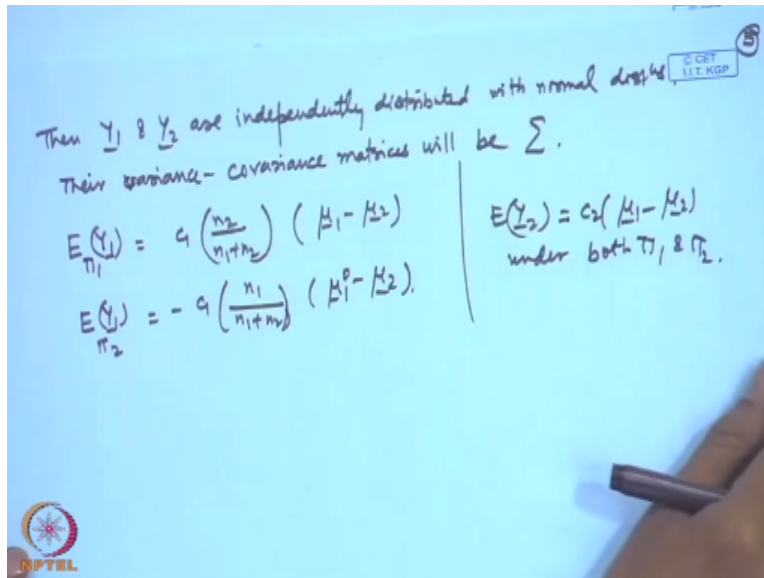 5
© CET
I.I.T. KGP
Then Y1 & Y2 are independently distributed with normal
Their variance-covariance matrices will be Σ.
E_π1 (Y1) = c1 (n2/(n1+n2)) (μ1 - μ2)
E_π2 (Y1) = - c1 (n1/(n1+n2)) (μ1 - μ2).
E(Y2) = c2(μ1 - μ2)
under both π1 & π2.
NPTEL